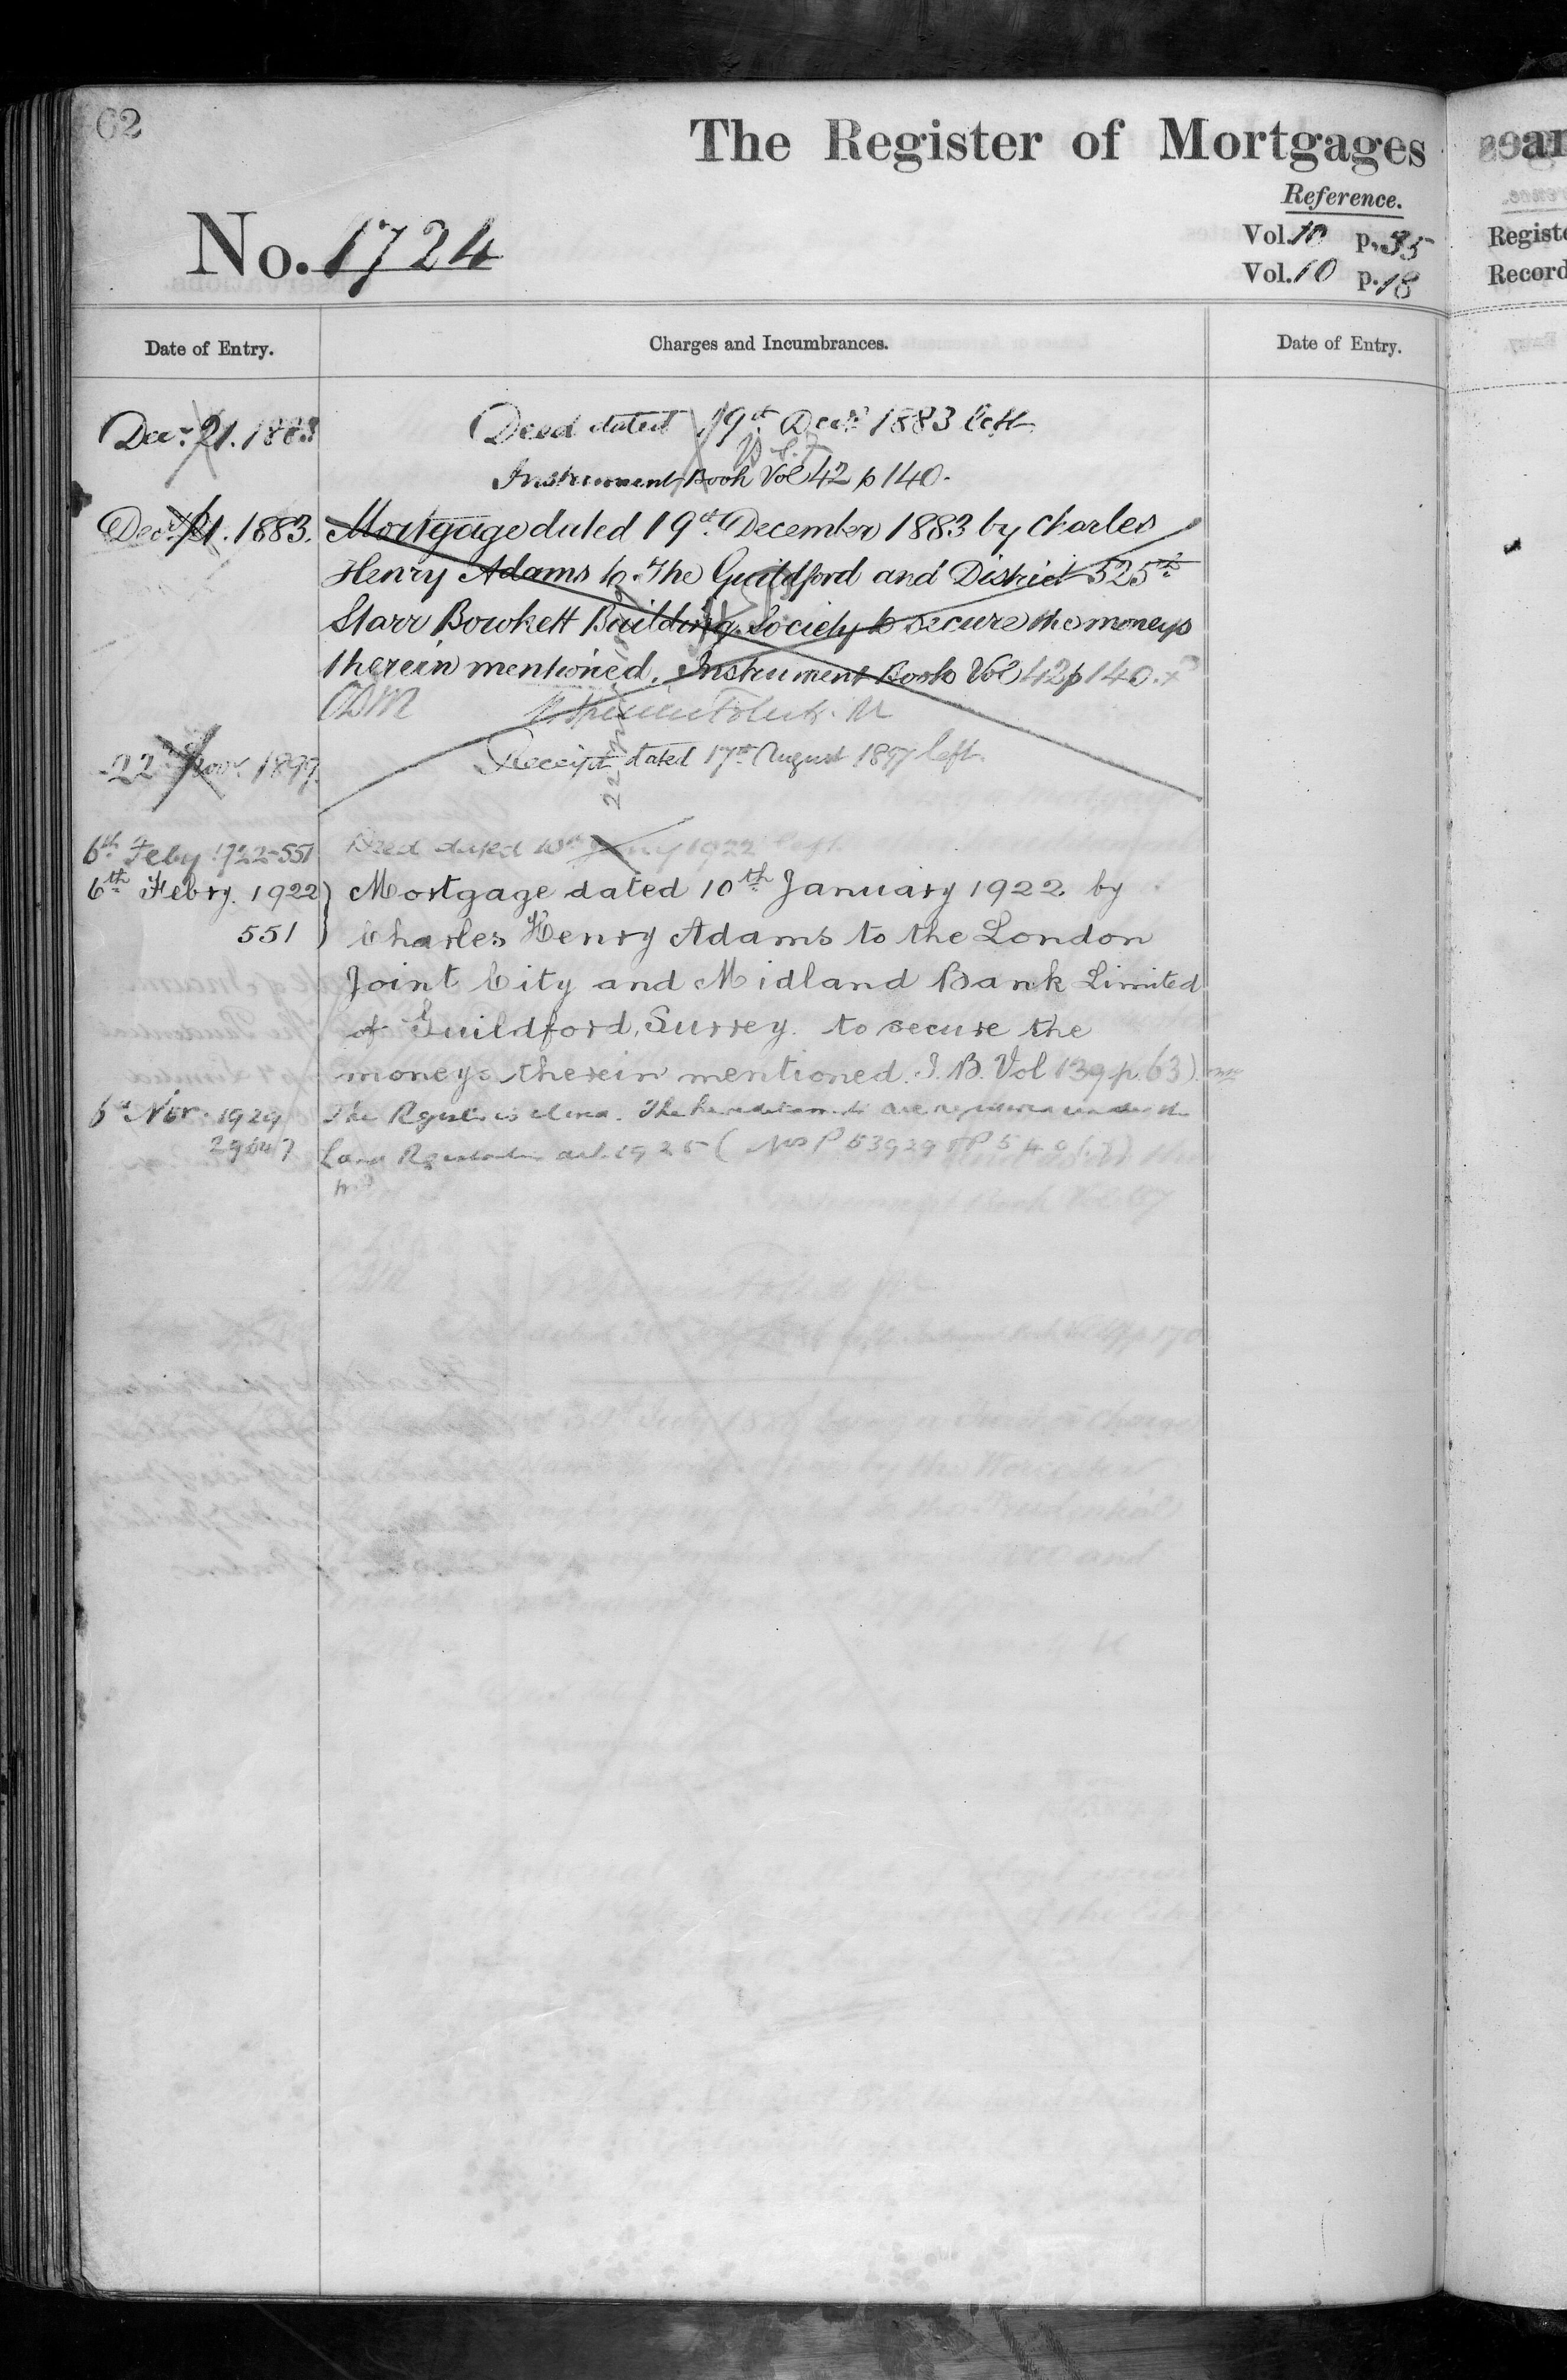 62
The Register of Mortgages
Reference.
No. 1724
Vol. 10 p. 35
Vol. 10 p. 18
Registe
Record
Date of Entry.
Charges and Incumbrances.
Date of Entry.
Decr. 21. 1883
Deed dated 19th Decr. 1883 left
Instrument Book Vol 42 p 140.
Decr. 21. 1883.
Mortgage dated 19th December 1883 by Charles
Henry Adams to The Guildford and District 525th
Starr Bowkett Building Society to secure the moneys
therein mentioned. Instrument Book Vol 42 p 140.
22 Novr. 1899
Receipt dated 17th August 1897 left.
6th Feby 1922-551
Deed dated 10th Jany 1922 left
6th Febry. 1922
551
Mortgage dated 10th January 1922 by
Charles Henry Adams to the London
Joint City and Midland Bank Limited
of Guildford, Surrey. to secure the
moneys therein mentioned. I. B. Vol 139 p. 63)
6th Nov. 1929
The Register is closed. The hereditaments are registered under the
Land Registration Act. 1925 (Nos P 53929